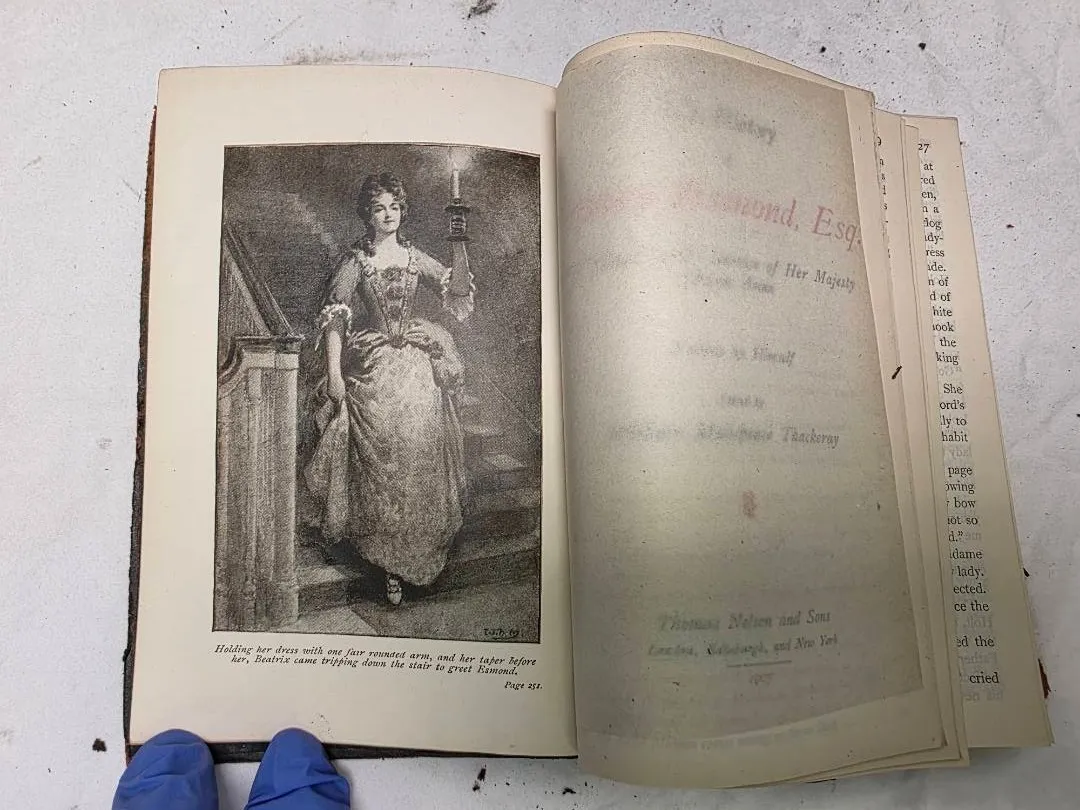 Holding her dress with one fair rounded arm, and her taper before
her, Beatrix came tripping down the stair to greet Esmond.
Page 251.
History
Esmond, Esq.
of Her Majesty
Queen Anne
Written by Himself
Edited by
Makepeace Thackeray
Thomas Nelson and Sons
London, Edinburgh, and New York
9
27
at
red
en,
n a
dog
ady-
ress
ade.
n of
d of
hite
ook
the
king
She
ord's
ly to
habit
page
owing
bow
not so
d."
dame
lady.
ected.
ce the
ed the
cried